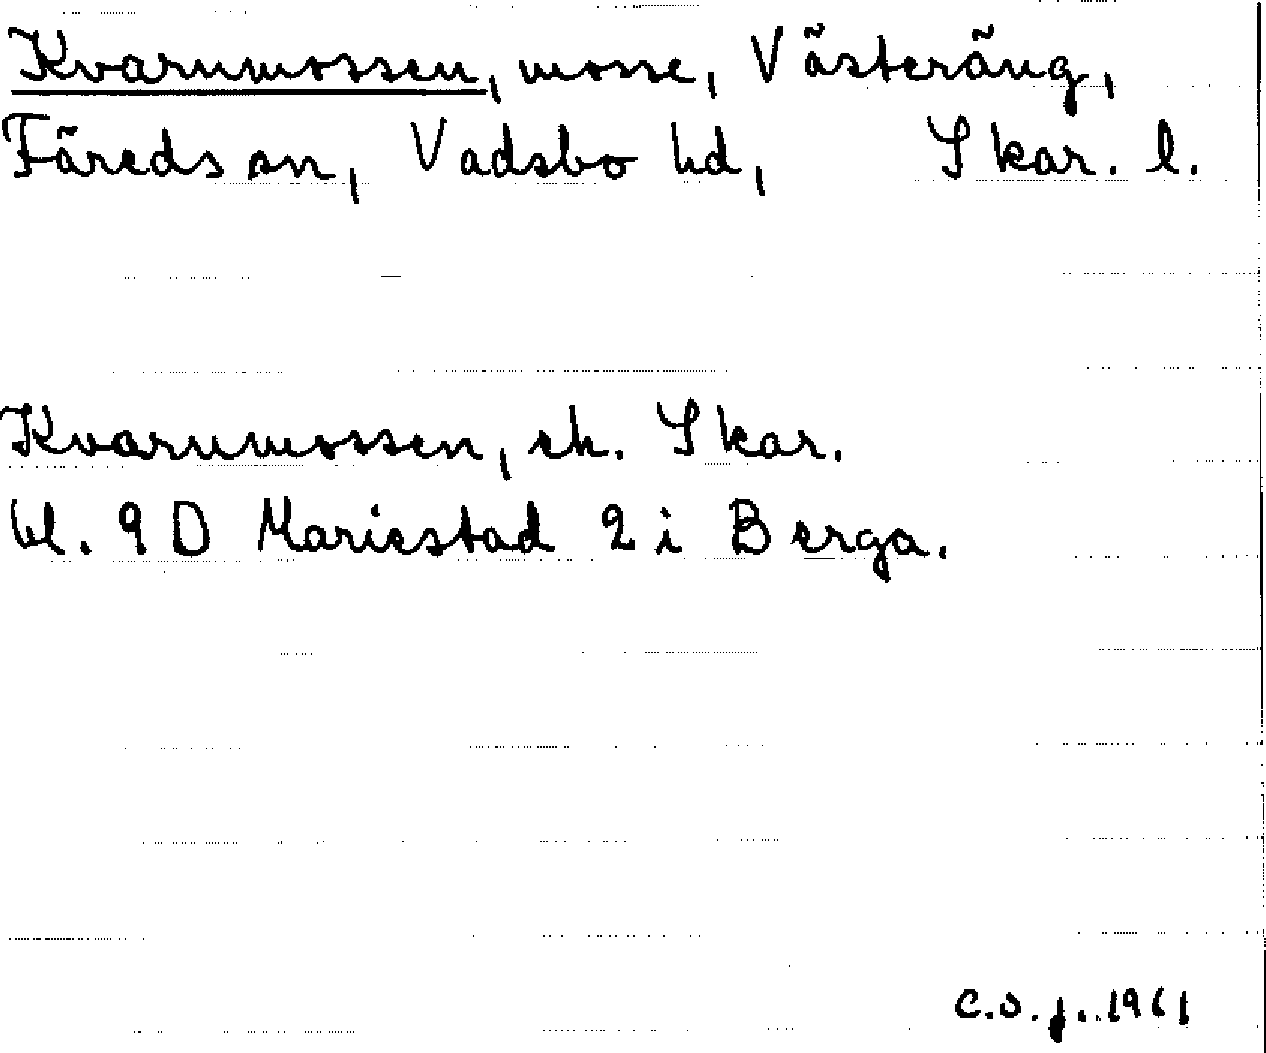 Kvarnmossen, mosse, Västeräng,
Färeds sn, Vadsbo hd, Skar. l.
Kvarnmossen, ek. Skar.
bl. 9 D Mariestad 2 i Berga.
C.O.J. 1961